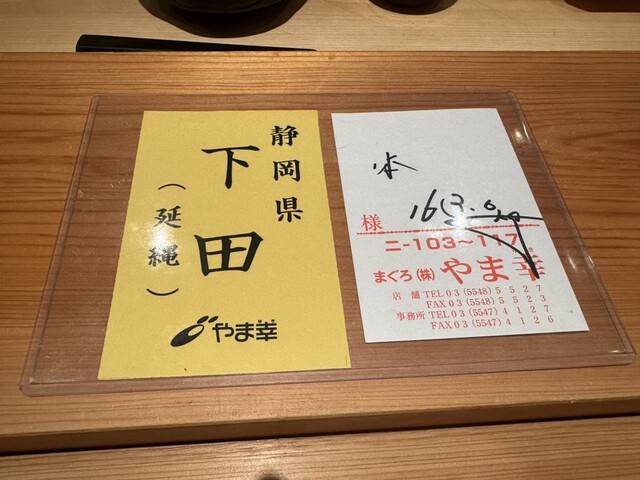 静岡県
下田
（延縄）
やま幸
本
163.6kg
様
ニー103〜117
まぐろ（株）やま幸
店舗 TEL03（5548）5527
FAX03（5548）5523
事務所 TEL03（5547）4127
FAX03（5547）4126